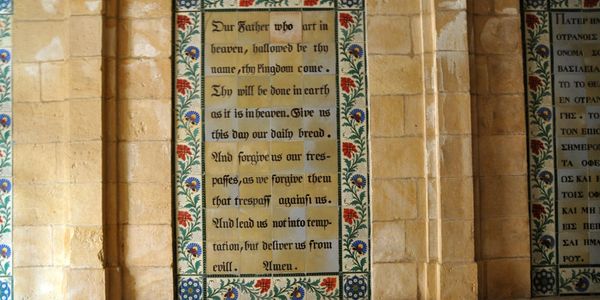 Our Father who art in
heaven, hallowed be thy
name, thy kingdom come.
Thy will be done in earth
as it is in heaven. Give us
this day our daily bread.
And forgive us our tres-
paſſes, as we forgive them
that trespaſſ againſt us.
And lead us not into temp-
tation, but deliver us from
evill. Amen.
ΠΑΤΕΡ ΗΜ
ΤΩ ΤΟ ΘΕ
ΓΗΣ. ΤΟ
ΤΑ ΟΦΕ
ΩΣ ΚΑΙ
ΚΑΙ ΜΗ
ΣΑΙ ΗΜΑ
ΡΟΥ.